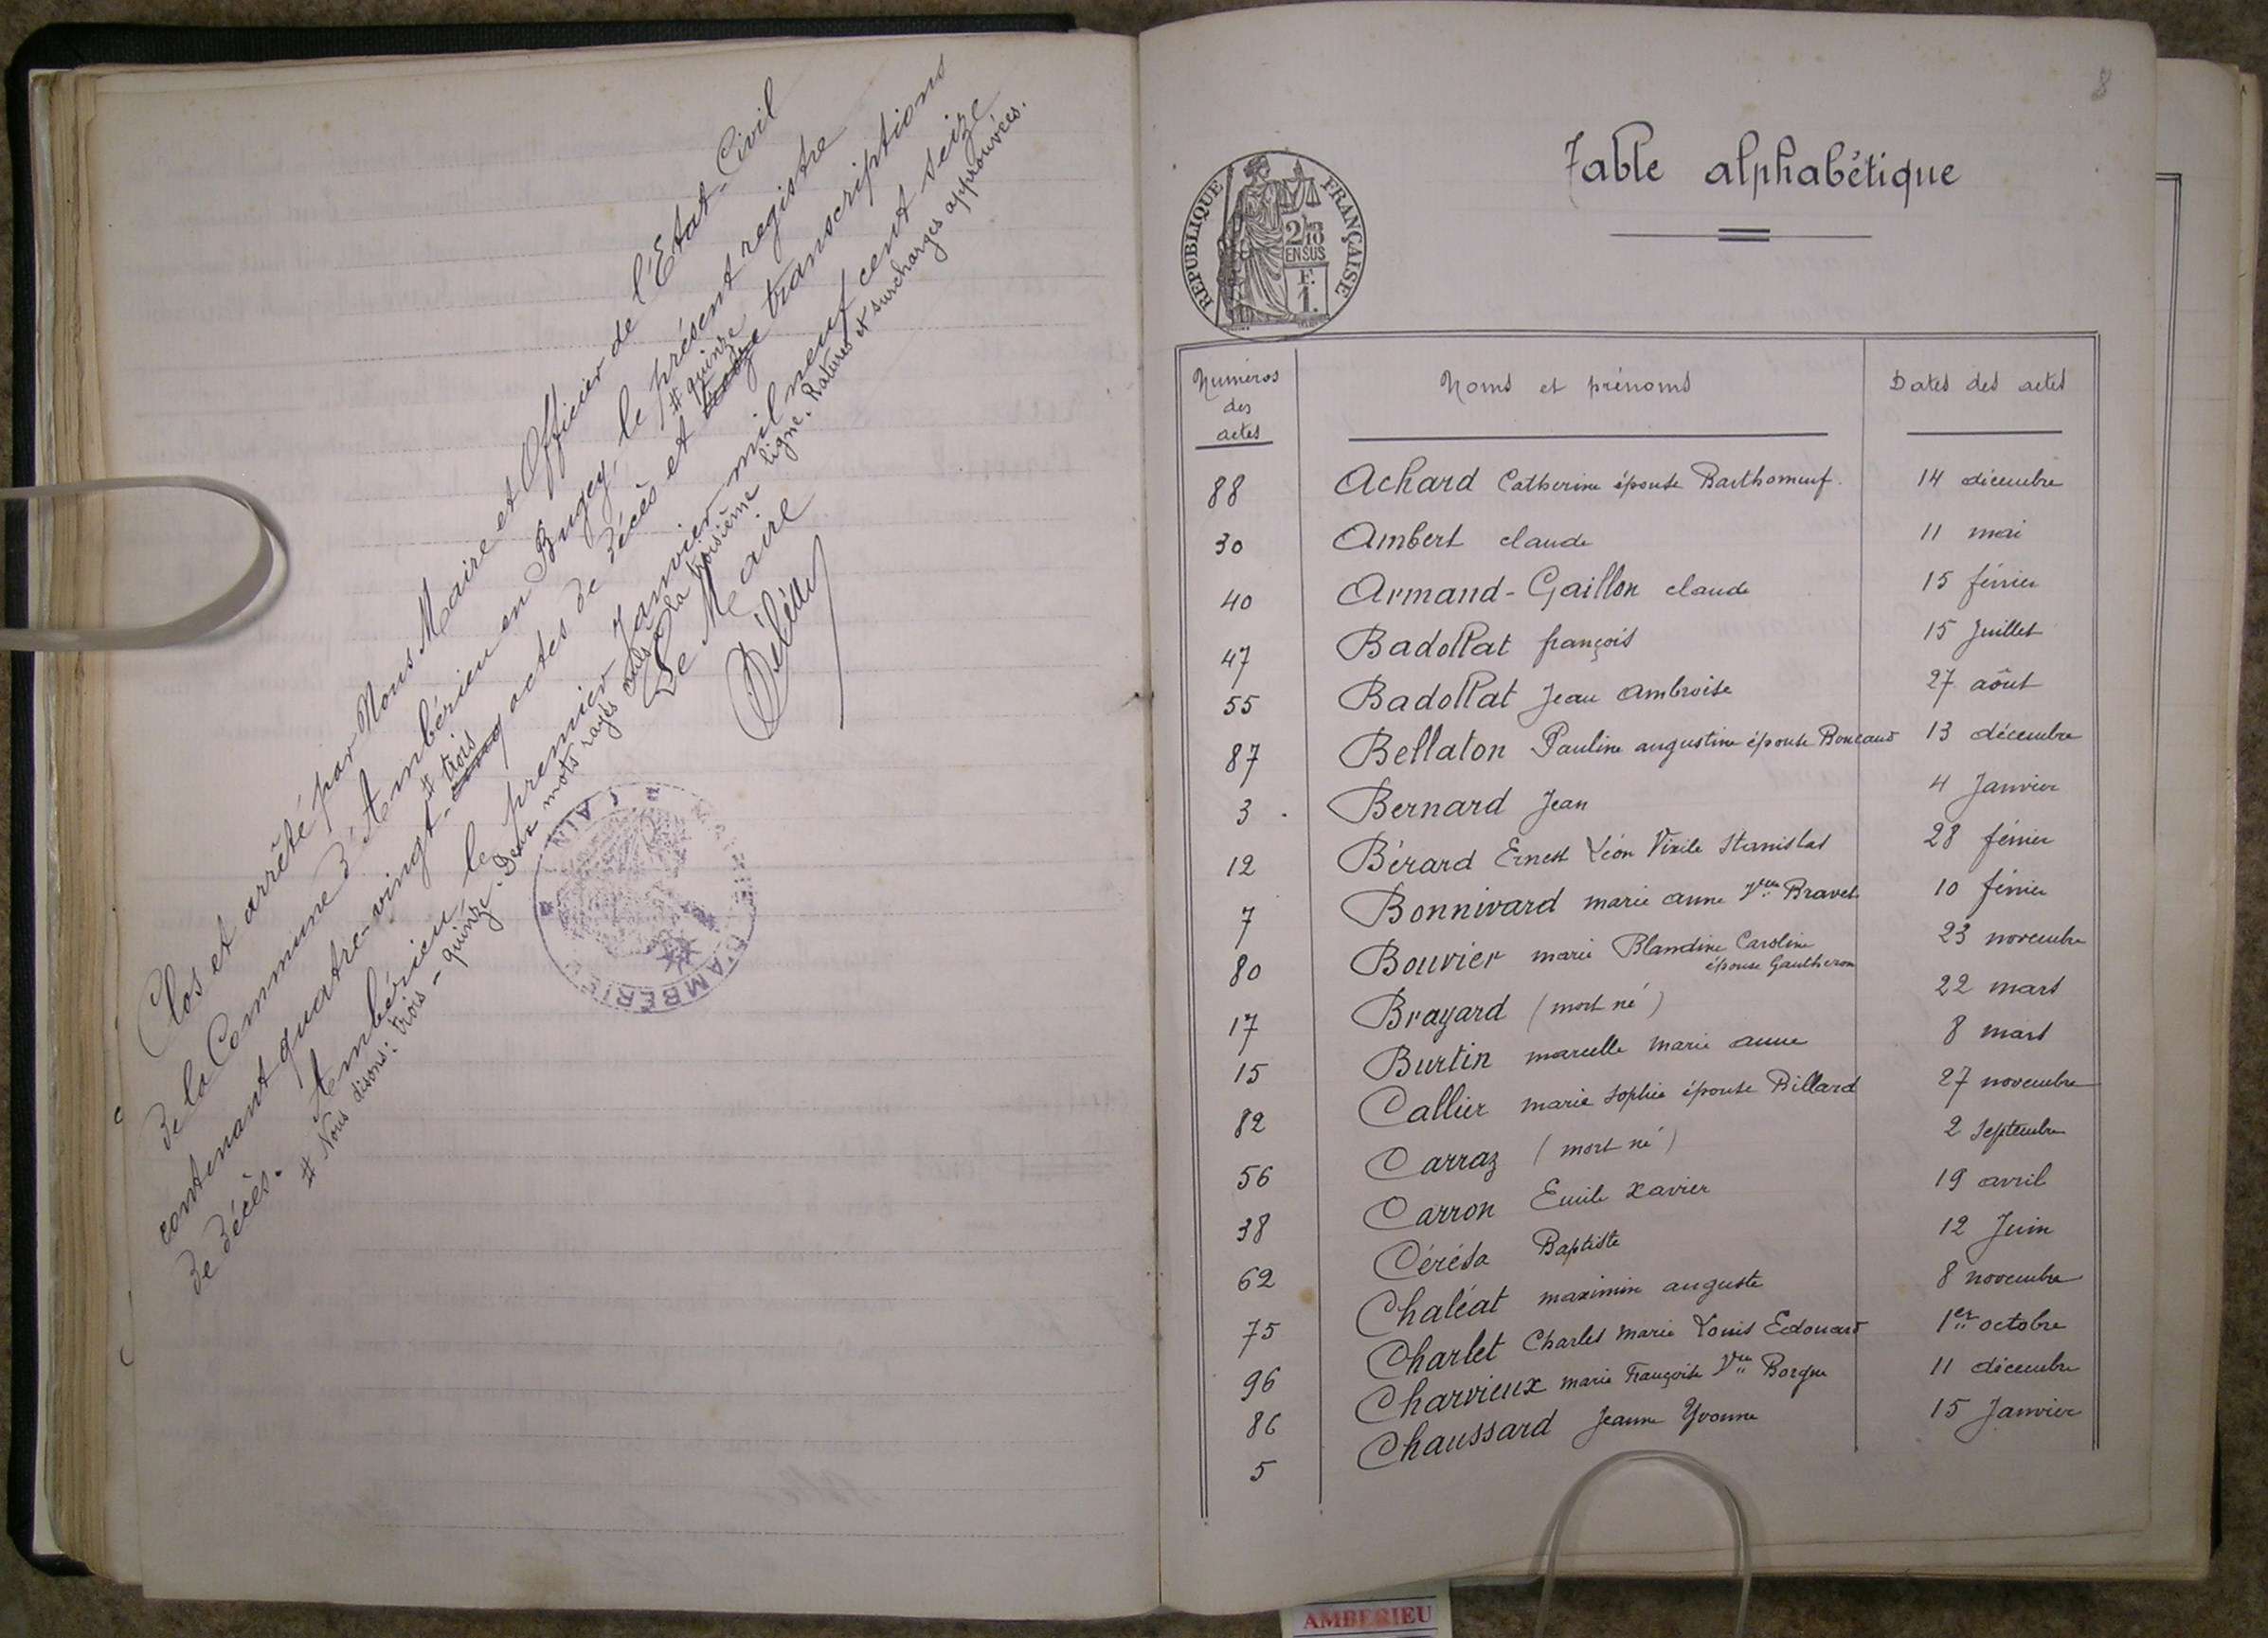 Clos et arrêté par Nous Maire et Officier de l'Etat-Civil
de la Commune d'Ambérieu en Bugey, le présent registre
# trois # quinze
contenant quatre-vingt-cinq actes de décès et treize transcriptions
de décès.
Ambérieu, le premier Janvier mil neuf cent seize
# Nous disons: trois - quinze. Deux mots rayés nuls à la troisième ligne. Ratures et surcharges approuvées.
Le Maire
MAIRIE D'AMBERIEU
AIN
8
Table alphabétique
REPUBLIQUE FRANÇAISE
2/10
EN SUS
F.
1.
Numéros des actes Noms et prénoms Dates des actes
88 Achard Catherine épouse Barthomeuf. 14 décembre
30 Ambert claude 11 mai
40 Armand-Gaillon claude 15 février
47 Badollat françois 15 Juillet
55 Badollat Jean Ambroise 27 août
87 Bellaton Pauline augustine épouse Boucaud 13 décembre
3 Bernard Jean 4 Janvier
12 Bérard Ernest Léon Virile Stanislas 28 février
7 Bonnivard marie anne Vve Bravet 10 février
80 Bouvier marie Blandine Caroline épouse Gautheron 23 novembre
17 Brayard (mort né) 22 mars
15 Burtin marcelle marie anne 8 mars
82 Callier marie sophie épouse Billard 27 novembre
56 Carraz (mort né) 2 Septembre
38 Carron Emile xavier 19 avril
62 Cérésa Baptiste 12 Juin
75 Chaléat maximin auguste 8 novembre
96 Charlet Charles marie Louis Edouard 1er octobre
86 Charvieux marie Françoise Vve Borgue 11 décembre
5 Chaussard Jeanne Yvonne 15 Janvier
AMBERIEU